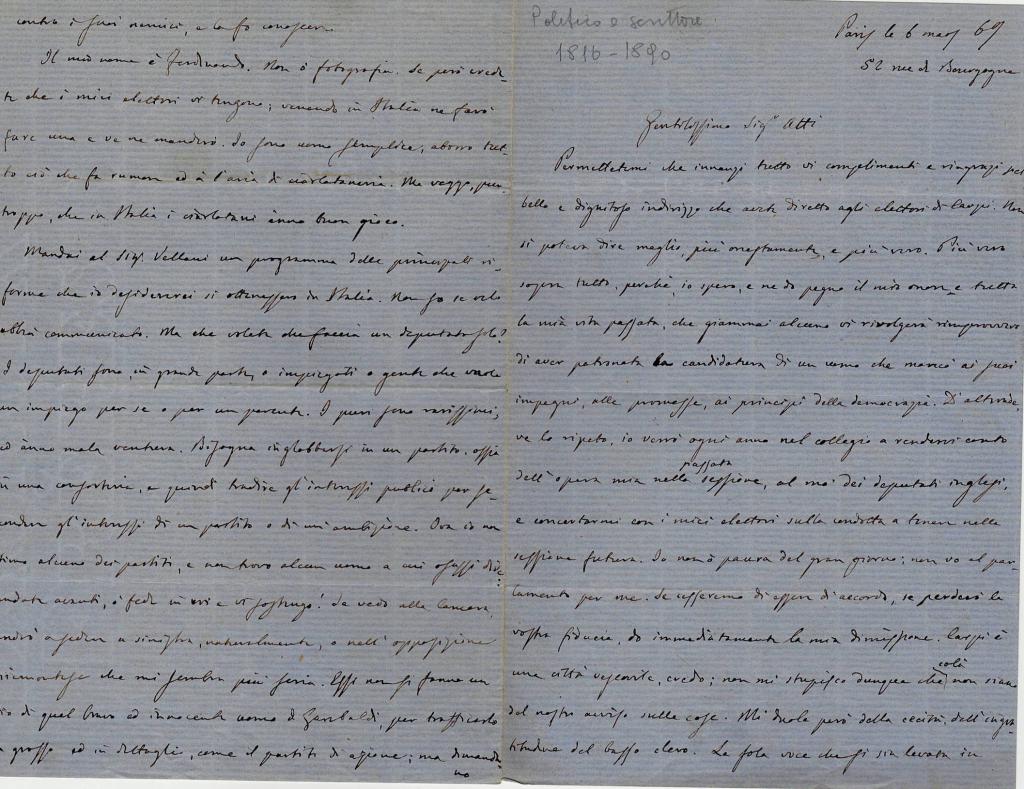 contro i suoi nemici, e lo fo conoscere.
Il mio nome è Ferdinando. Non ò fotografia. Se però crede-
te che i miei elettori vi tengono; venendo in Italia ne farò
fare una e ve ne manderò. Io sono uomo semplice; aborro tut-
to ciò che fa rumore ed à l'aria di ciarlataneria. Ma veggo, pur-
troppo, che in Italia i ciarlatani ànno buon gioco.
Mandai al Sigr. Vellani un programma delle principali ri-
forme che io desidererei si ottenessero in Italia. Non so se ve lo
abbia comunicato. Ma che volete che faccia un deputato solo?
I deputati sono, in grande parte, o impiegati o gente che vuole
un impiego per se o per un parente. I puri sono rarissimi,
ed ànno mala ventura. Bisogna inglobbarsi in un partito, ossia
in una consorteria, e quindi tradire gl'interessi publici per
gl'interessi di un partito o di un'ambizione. Ora io non
stimo alcuno dei partiti, e non trovo alcun uomo a cui osassi dire:
andate avanti, ò fede in voi e vi sostengo! Se vado alla Camera,
andrò a sedere a sinistra, naturalmente, o nell'opposizione
piemontese che mi sembra più seria. Essi non si fanno un
di quel bravo ed innocente uomo di Garibaldi, per trafficarlo
a grosso ed in dettaglio, come il partito di azione; ma dimanda-
no
Politico e scrittore
1816 - 1890
Paris le 6 mars 69
52 rue de Bourgogne
Gentilissimo Sigr Atti
Permettetemi che innanzi tutto vi complimenti e ringrazi pel
bello e dignitoso indirizzo che avete diretto agli elettori di Carpi. Non
si poteva dire meglio, più onestamente, e più vero. Più vero
sopra tutto, perché, io spero, e ne do pegno il mio onore e tutta
la mia vita passata, che giammai alcuno vi rivolgerà rimprovero
di aver patronata la candidatura di un uomo che mancò ai suoi
impegni, alle promesse, ai principj della democrazia. D'altronde,
ve lo ripeto, io verrò ogni anno nel collegio a rendervi conto
dell'opera mia nella passata sessione, al mo' dei deputati inglesi,
e concertarmi con i miei elettori sulla condotta a tenere nella
sessione futura. Io non ò paura del gran giorno; non vo al par-
lamento per me. Se cesseremo di essere di accordo, se perderò la
vostra fiducia, do immediatamente la mia dimissione. Carpi è
una città vescovile, credo; non mi stupisco dunque che colà non siano
del nostro avviso sulle cose. Mi duole però della cecità, dell'ingra-
titudine del basso clero. La sola voce che si sia levata in